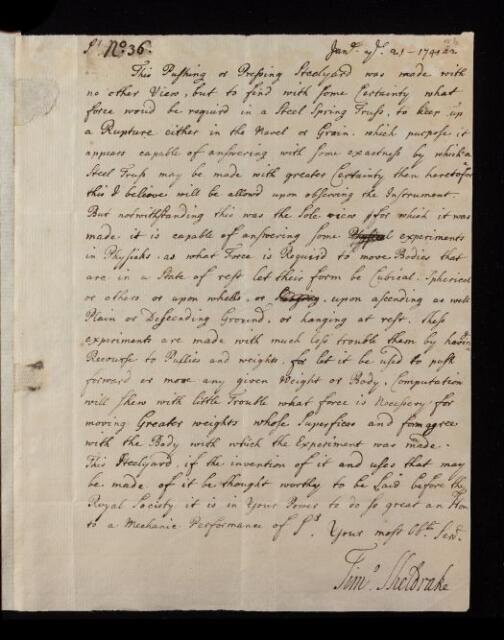 Sr No 36. Janry ye 21 - 1741/2
This Pushing or Pressing Steelyard was made with
no other View, but to find with some Certainty what
force wou'd be requird in a Steel Spring Truss, to keep up
a Rupture either in the Navel or Grain. which purpose it
appears capable of answering with some exactness by which a
Steel Truss may be made with greater Certainty then heretofore
this I believe will be allowd upon observing the Instrument.
But notwithstanding this was the Sole view for which it was
made. it is capable of answering some experiments
in Physicks. as what Force is Requird to move Bodies that
are in a State of rest let their form be Cubical. Spherical
or others or upon wheels, or upon ascending as well
Plain or Descending Ground, or hanging at rest. these
experiments are made with much less trouble them by having
Recourse to Pullies and weights, for let it be used to push
forward or move any given Weight or Body, Computation
will shew with little Trouble what force is Necessery for
moving Greater weights whose Superfices and form agree
with the Body with which the Experiment was made.
This Steelyard, if the invention of it and uses that may
be made of it be thought worthy to be Laid before the
Royal Society it is in Your Power to do so great an Honr
to a Mechanic Performance of Sr Your most Obt. Servt.
Timo. Sheldrake